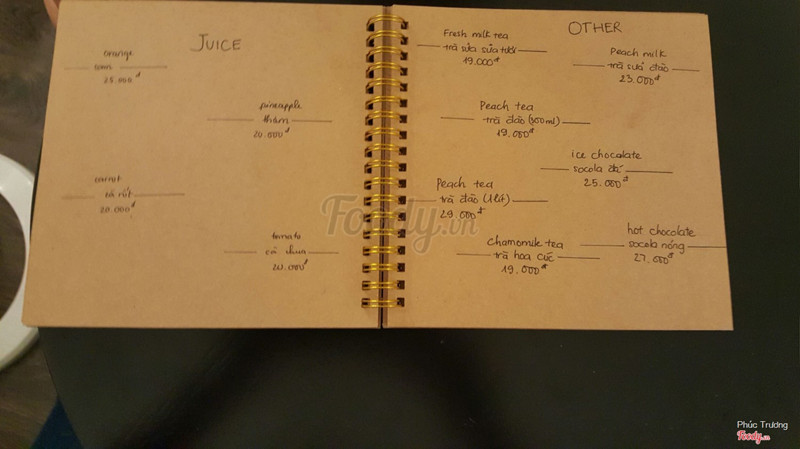 JUICE
orange
cam
25.000đ
pineapple
thơm
20.000đ
carrot
cà rốt
20.000đ
tomato
cà chua
20.000đ
OTHER
Fresh milk tea
trà sữa sữa tươi
19.000đ
Peach milk
trà sữa đào
23.000đ
Peach tea
trà đào (500ml)
19.000đ
ice chocolate
socola đá
25.000đ
Peach tea
trà đào (1 lít)
29.000đ
hot chocolate
socola nóng
27.000đ
Chamomile tea
trà hoa cúc
19.000đ
Foody.vn
Phúc Trương
Foody.vn